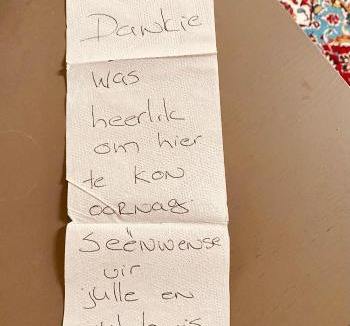 Dankie
was
heerlik
om hier
te kon
oornag.
Seënwense
vir
julle en